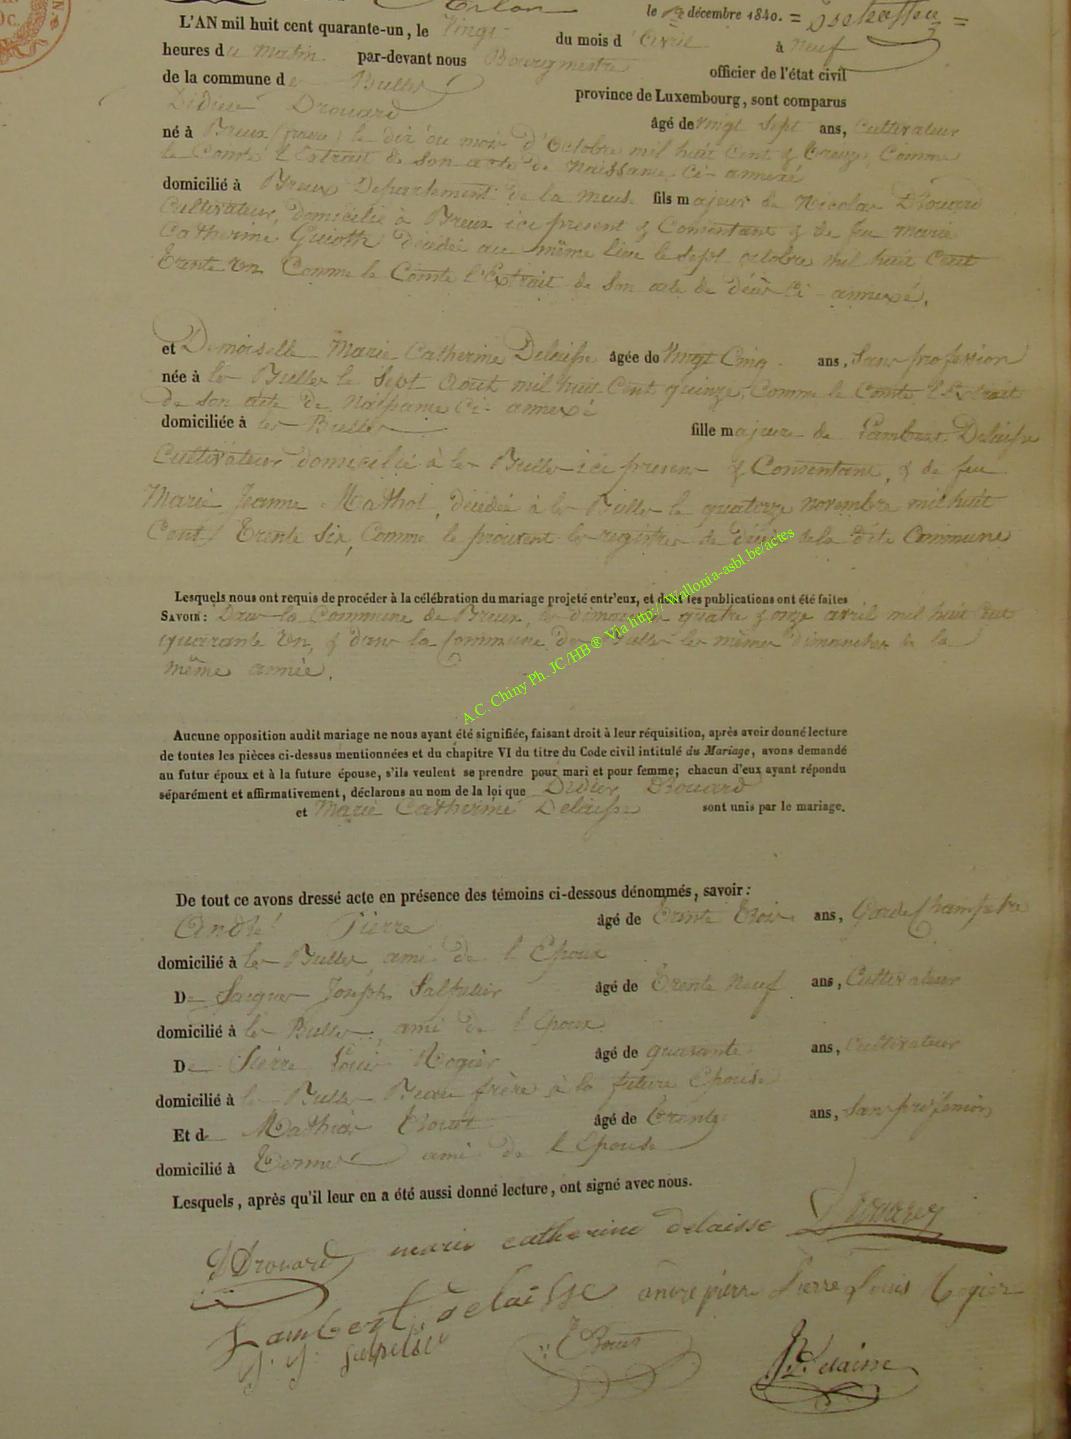 Arlon le 12 décembre 1840. =
L'AN mil huit cent quarante-un, le Vingt du mois d'Avril à neuf
heures du matin par-devant nous Bourgmestre officier de l'état civil
de la commune de Bulles province de Luxembourg, sont comparus
Didier Drouard âgé de vingt sept ans, Cultivateur
né à Breux (france) le dix du mois d'Octobre mil huit cent & treize, Comme
le Comte l'Extrait de son acte de Naissance ci-annexé
domicilié à Breux Département de la Meuse fils majeur de Nicolas Drouard
Cultivateur, domicilié à Breux ici présent & Consentant & de feu Marie
Catherine décédée au même lieu le sept octobre mil huit Cent
trente un Comme le Comte l'Extrait de son acte de décès Ci-annexé.
et Demoiselle Marie Catherine Delaisse âgée de Vingt Cinq ans, Sans profession
née à les Bulles le Sept Aout mil huit Cent quinze, Comme le Comte l'Extrait
de son acte de Naissance Ci-annexé
domiciliée à les Bulles fille majeure de Lambert Delaisse
Cultivateur domicilié à les Bulles ici présent & Consentant, & de feu
Marie Jeanne Mathot, décédée à les Bulles le quatorze novembre mil huit
Cent trente Six, Comme le prouvent les registres de décès de la dite Commune
Lesquels nous ont requis de procéder à la célébration du mariage projeté entr'eux, et dont les publications ont été faites
SAVOIR : Dans la Commune de Breux, les dimanches quatre & onze avril mil huit Cent
quarante un, & dans la Commune de Bulles les mêmes dimanches de la
même année.
Aucune opposition audit mariage ne nous ayant été signifiée, faisant droit à leur réquisition, après avoir donné lecture
de toutes les pièces ci-dessus mentionnées et du chapitre VI du titre du Code civil intitulé du Mariage, avons demandé
au futur époux et à la future épouse, s'ils veulent se prendre pour mari et pour femme; chacun d'eux ayant répondu
séparément et affirmativement, déclarons au nom de la loi que Didier Drouard
et Marie Catherine Delaisse sont unis par le mariage.
De tout ce avons dressé acte en présence des témoins ci-dessous dénommés, savoir :
André Pierre âgé de trente trois ans, Garde Champetre
domicilié à les Bulles ami de l'Epoux
De Jacques Joseph âgé de trente neuf ans, Cultivateur
domicilié à les Bulles, ami de l'Epoux
De Pierre Louis Rogier âgé de quarante ans, Cultivateur
domicilié à les Bulles Beau frère à la future Epouse
Et de Mathias âgé de trente ans, San profession
domicilié à Termes ami de l'Epouse
Lesquels, après qu'il leur en a été aussi donné lecture, ont signé avec nous.
D Drouard marie catherine delaisse Drouard
Lambert delaisse andre pierre Pierre Louis Rogier
J. J.
Delaisse
A.C. Chiny Ph. JC /HB® Via http://Wallonia-asbl.be/actes